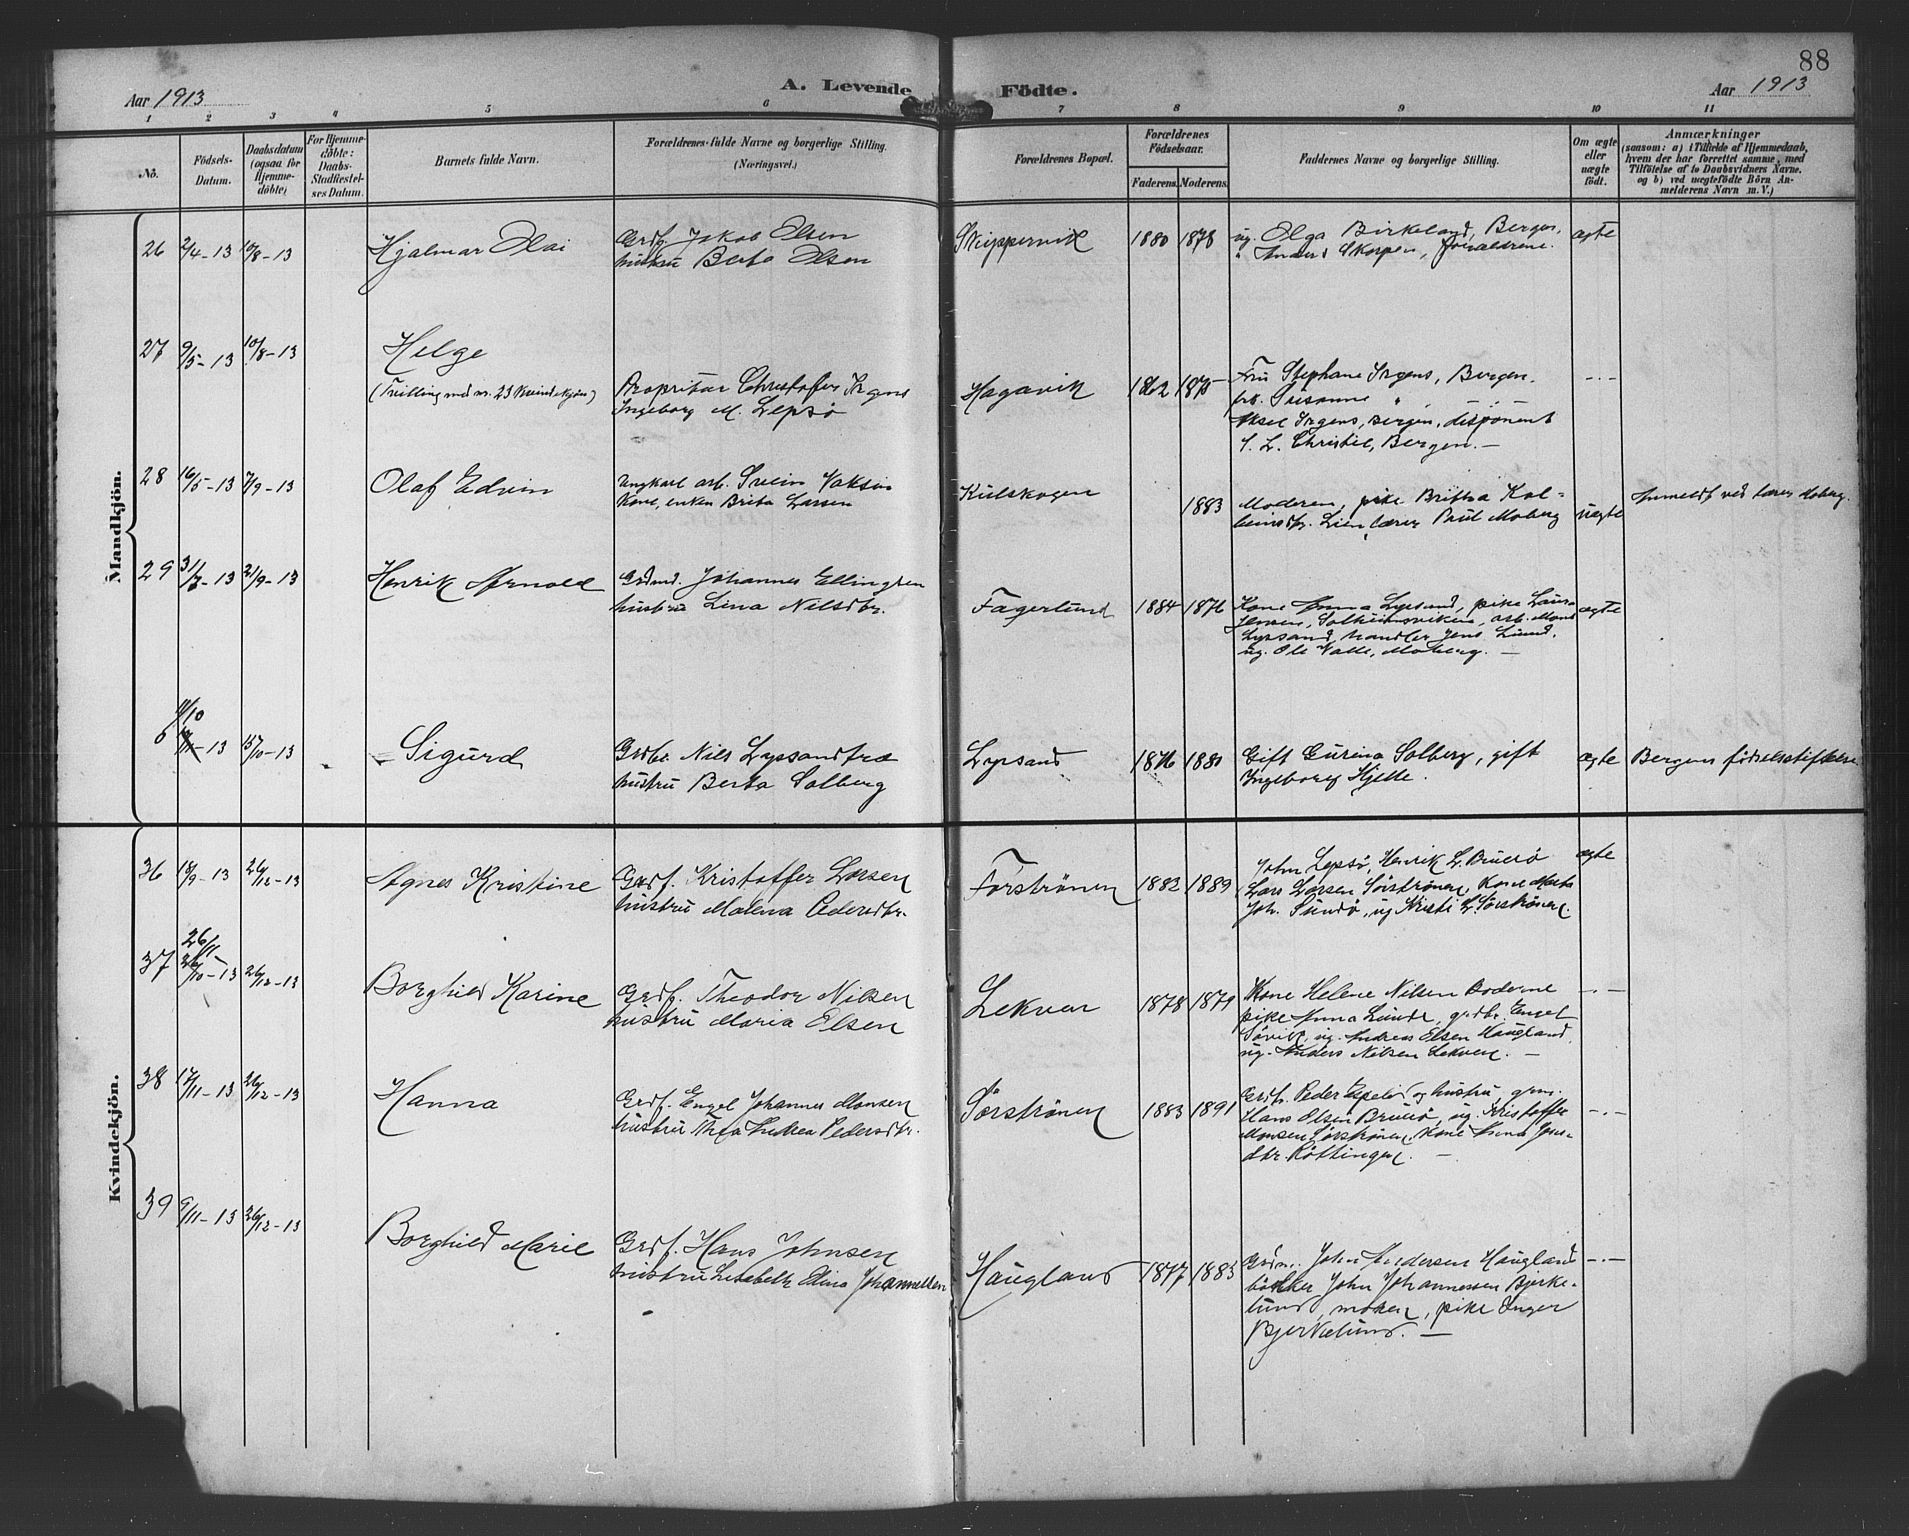 88
Aar 1913
A. Levende Födte.
Aar 1913
1 2 3 4 5 6 7 8 9 10 11
No.
Födsels-
Datum.
Daabsdatum
(ogsaa for
Hjemme-
döbte)
For Hjemme-
döbte:
Daabs-
Stadfæstel-
ses Datum.
Barnets fulde Navn.
Forældrenes fulde Navne og borgerlige Stilling.
(Næringsvei.)
Forældrenes Bopæl.
Forældrenes
Födselsaar.
Faderens. Moderens.
Faddernes Navne og borgerlige Stilling.
Om ægte
eller
uægte
födt.
Anmærkninger
(saasom: a) i Tilfælde af Hjemmedaab,
hvem der har forrettet samme, med
Tilföielse af to Daabsvidners Navne.
og b) ved uægtefödte Börn An-
melderens Navn m. V.)
Mandkjön.
26 2/4-13 10/8-13 Hjalmar Olai
Grdf. Jakob Olsen
hustru Berta Olsen
Skippervik 1880 1878
ug. Olga Birkeland, Bergen,
" Anders Skorpen, forældrene.
ægte
27 9/5-13 10/8-13 Helge
(Tvilling med nr. 23 Kvindekjøn)
Propritær Christofer Irgens
Ingeborg M. Lepsø
Hagavik 1862 1875
Fru Stephane Irgens, Bergen.
frk. Susanne " - -
Aksel Irgens, Bergen, disponent
S. L. Christie, Bergen. -
-.-
28 16/5-13 7/9-13 Olaf Edvin
Ungkarl arb. Svein
enken Brita Larsen
Kulskogen 1883
Moderen, pike Britha Kol-
beinsdtr. Lien, lærer Poul Moberg
uægte
Anmeldt ved lærer Moberg.
29 21/9-13 Henrik Arnold
Grdmd. Johannes Ellingsen
hustru Lina Nilsdtr.
Fagerlund 1884 1876
Kone Anna Lysand, pike Laura
Jensen, Solheimsviken, arb. Mons
Lyssand, handler Jens Lund.
ug. Ole Valle, Moberg. -
ægte
6 11/10
-13 15/10-13 Sigurd
Grdbr. Nils Lyssandtræ
hustru Berta Solberg
Lysand 1876 1880
Gift Gurina Solberg, gift
Ingeborg Hjelle.
ægte Bergens fødselsstiftelse
Kvindekjön.
36 18/9-13 26/12-13 Agnes Kristine
Grdf. Kristoffer Larsen
hustru Malena Pedersdtr.
Forstrønen 1882 1889
John Lepsø, Henrik L. Bruerø
Lars Larsen Sørstrønen, Kone Marta
Joh. Sundø, ug Kristi L. Sørstrønen.
ægte
26/11
37 26/10-13 26/12-13 Borghild Karine
Grdf. Theodor Nilsen
hustru Maria Elsen
Lekven 1878 1879
Kone Helene Nilsen Boderne
pike Anna Lunde, grdbr. Engel
Søvik, ug. Andreas Elsen Haugland,
ug. Anders Nilsen Lekven. -
-.-
38 17/11-13 26/12-13 Hanna
Grdf. Engel Johannes Monsen
hustru Thea Andrea Pedersdtr.
Sørstrønen 1883 1891
Grdb. Peder Espeland og hustru, grm.
Hans Olsen Bruerø, ug. Kristoffer
Monsen Sørstrønen, Kone Anna Jens-
dtr. Røttingen. -
-.-
39 9/11-13 26/12-13 Borghild Marie
Grdf. Hans Johnsen
hustru Lisabeth Elina Johannessen
Haugland 1877 1883
Grdm. John Andersen Haugland
bøkker John Johannessen Bjerke-
lund, moren, pike Inger
Bjerkelund. -
-.-